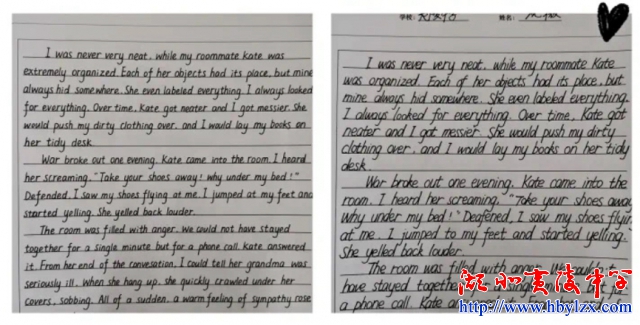 I was never very neat, while my roommate Kate was
extremely organized. Each of her objects had its place, but mine
always hid somewhere. She even labeled everything. I always looked
for everything. Over time, Kate got neater and I got messier. She
would push my dirty clothing over, and I would lay my books on
her tidy desk.
War broke out one evening. Kate came into the room. I heard
her screaming, "Take your shoes away! why under my bed!"
Defended, I saw my shoes flying at me. I jumped at my feet and
started yelling. She yelled back louder.
The room was filled with anger. We could not have stayed
together for a single minute but for a phone call. Kate answered
it. From her end of the convesation, I could tell her grandma was
seriously ill. When she hung up, she quickly crawled under her
covers, sobbing. All of a sudden, a warm feeling of sympathy rose
学校: 姓名:
I was never very neat, while my roommate Kate
was organized. Each of her objects had its place, but
mine always hid somewhere. She even labeled everything.
I always looked for everything. Over time, Kate got
neater and I got messier. She would push my dirty
clothing over, and I would lay my books on her tidy
desk.
War broke out one evening. Kate came into the
room. I heard her screaming, "Take your shoes away
why under my bed!" Deafened, I saw my shoes flyin
at me. I jumped to my feet and started yelling.
She yelled back louder.
The room was filled with anger. We couldn't
have stayed together a single but fo
a phone call. Kate an
www.hbylzx.com